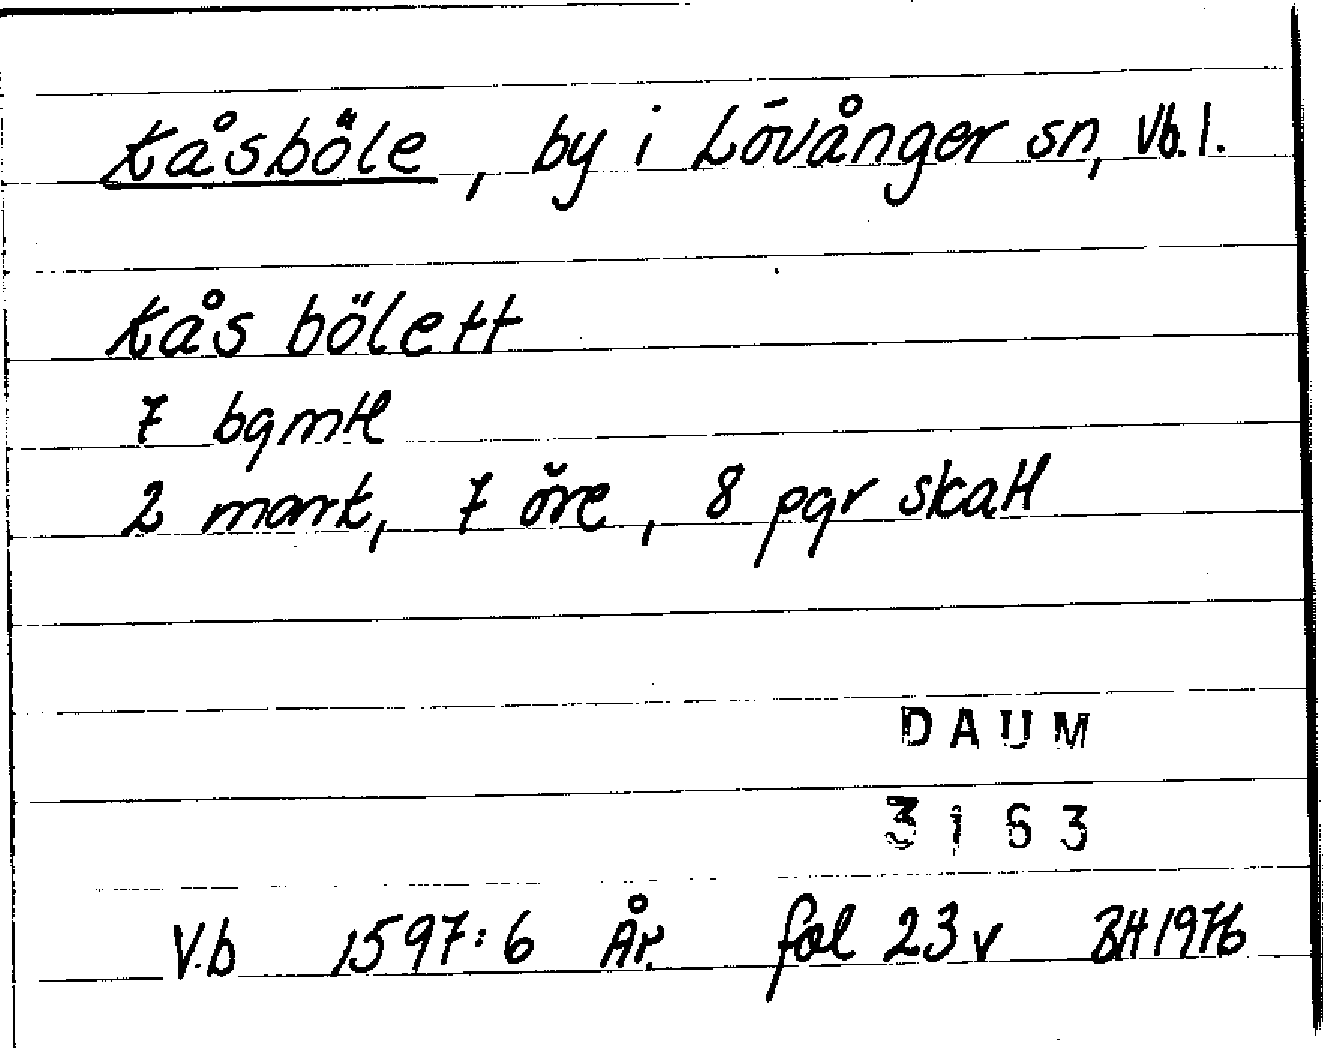 Kåsböle, by i Lövånger sn, Vb. l.
Kås bölett
7 bgmtl
2 mark, 7 öre, 8 pgr skatt
DAUM
3163
V.b 1597:6 År. fol 23 v BH 1976